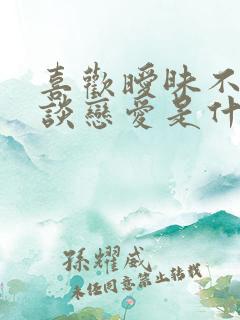 喜歡曖昧不
談戀愛是什
孫耀威
未經同意禁止轉載